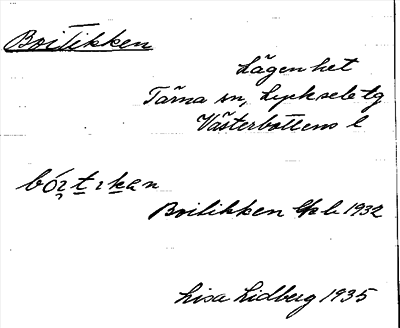 Boitikken
Lägenhet
Tärna sn, Lycksele tg
Västerbottens l
Boitikken
1932
Lisa Lidberg 1935